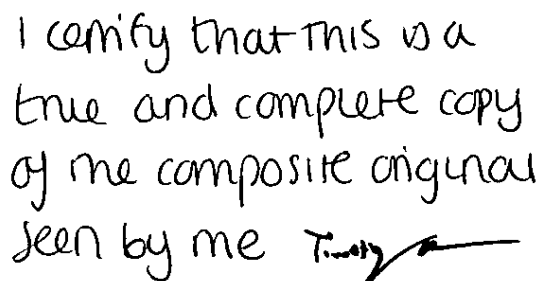 I certify that this is a
true and complete copy
of the composite original
seen by me Timothy